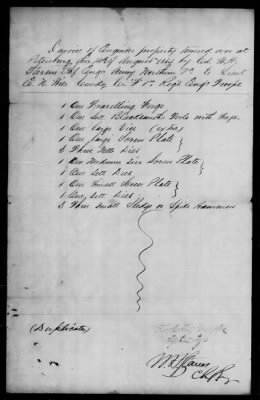 Invoice of Engineer property turned over at
Petersburg Jan 12th August 1864 by Col W. H.
Stevens Chf Engr Army Northern Va to Lieut
E. N. Wise Comdg Co "F" 1st Regt Engr Troops
1 One Travelling Forge
1 One Sett Blacksmith Tools with Forge
1 One large Vice (extra)
1 One large Screw Plate
3 Three Setts Dies
1 One Medium Size Screw Plate
1 One Sett Dies
1 One Small Screw Plate
1 One Sett Dies
3 Three Small Sledge or Spike Hammers
(Duplicate)